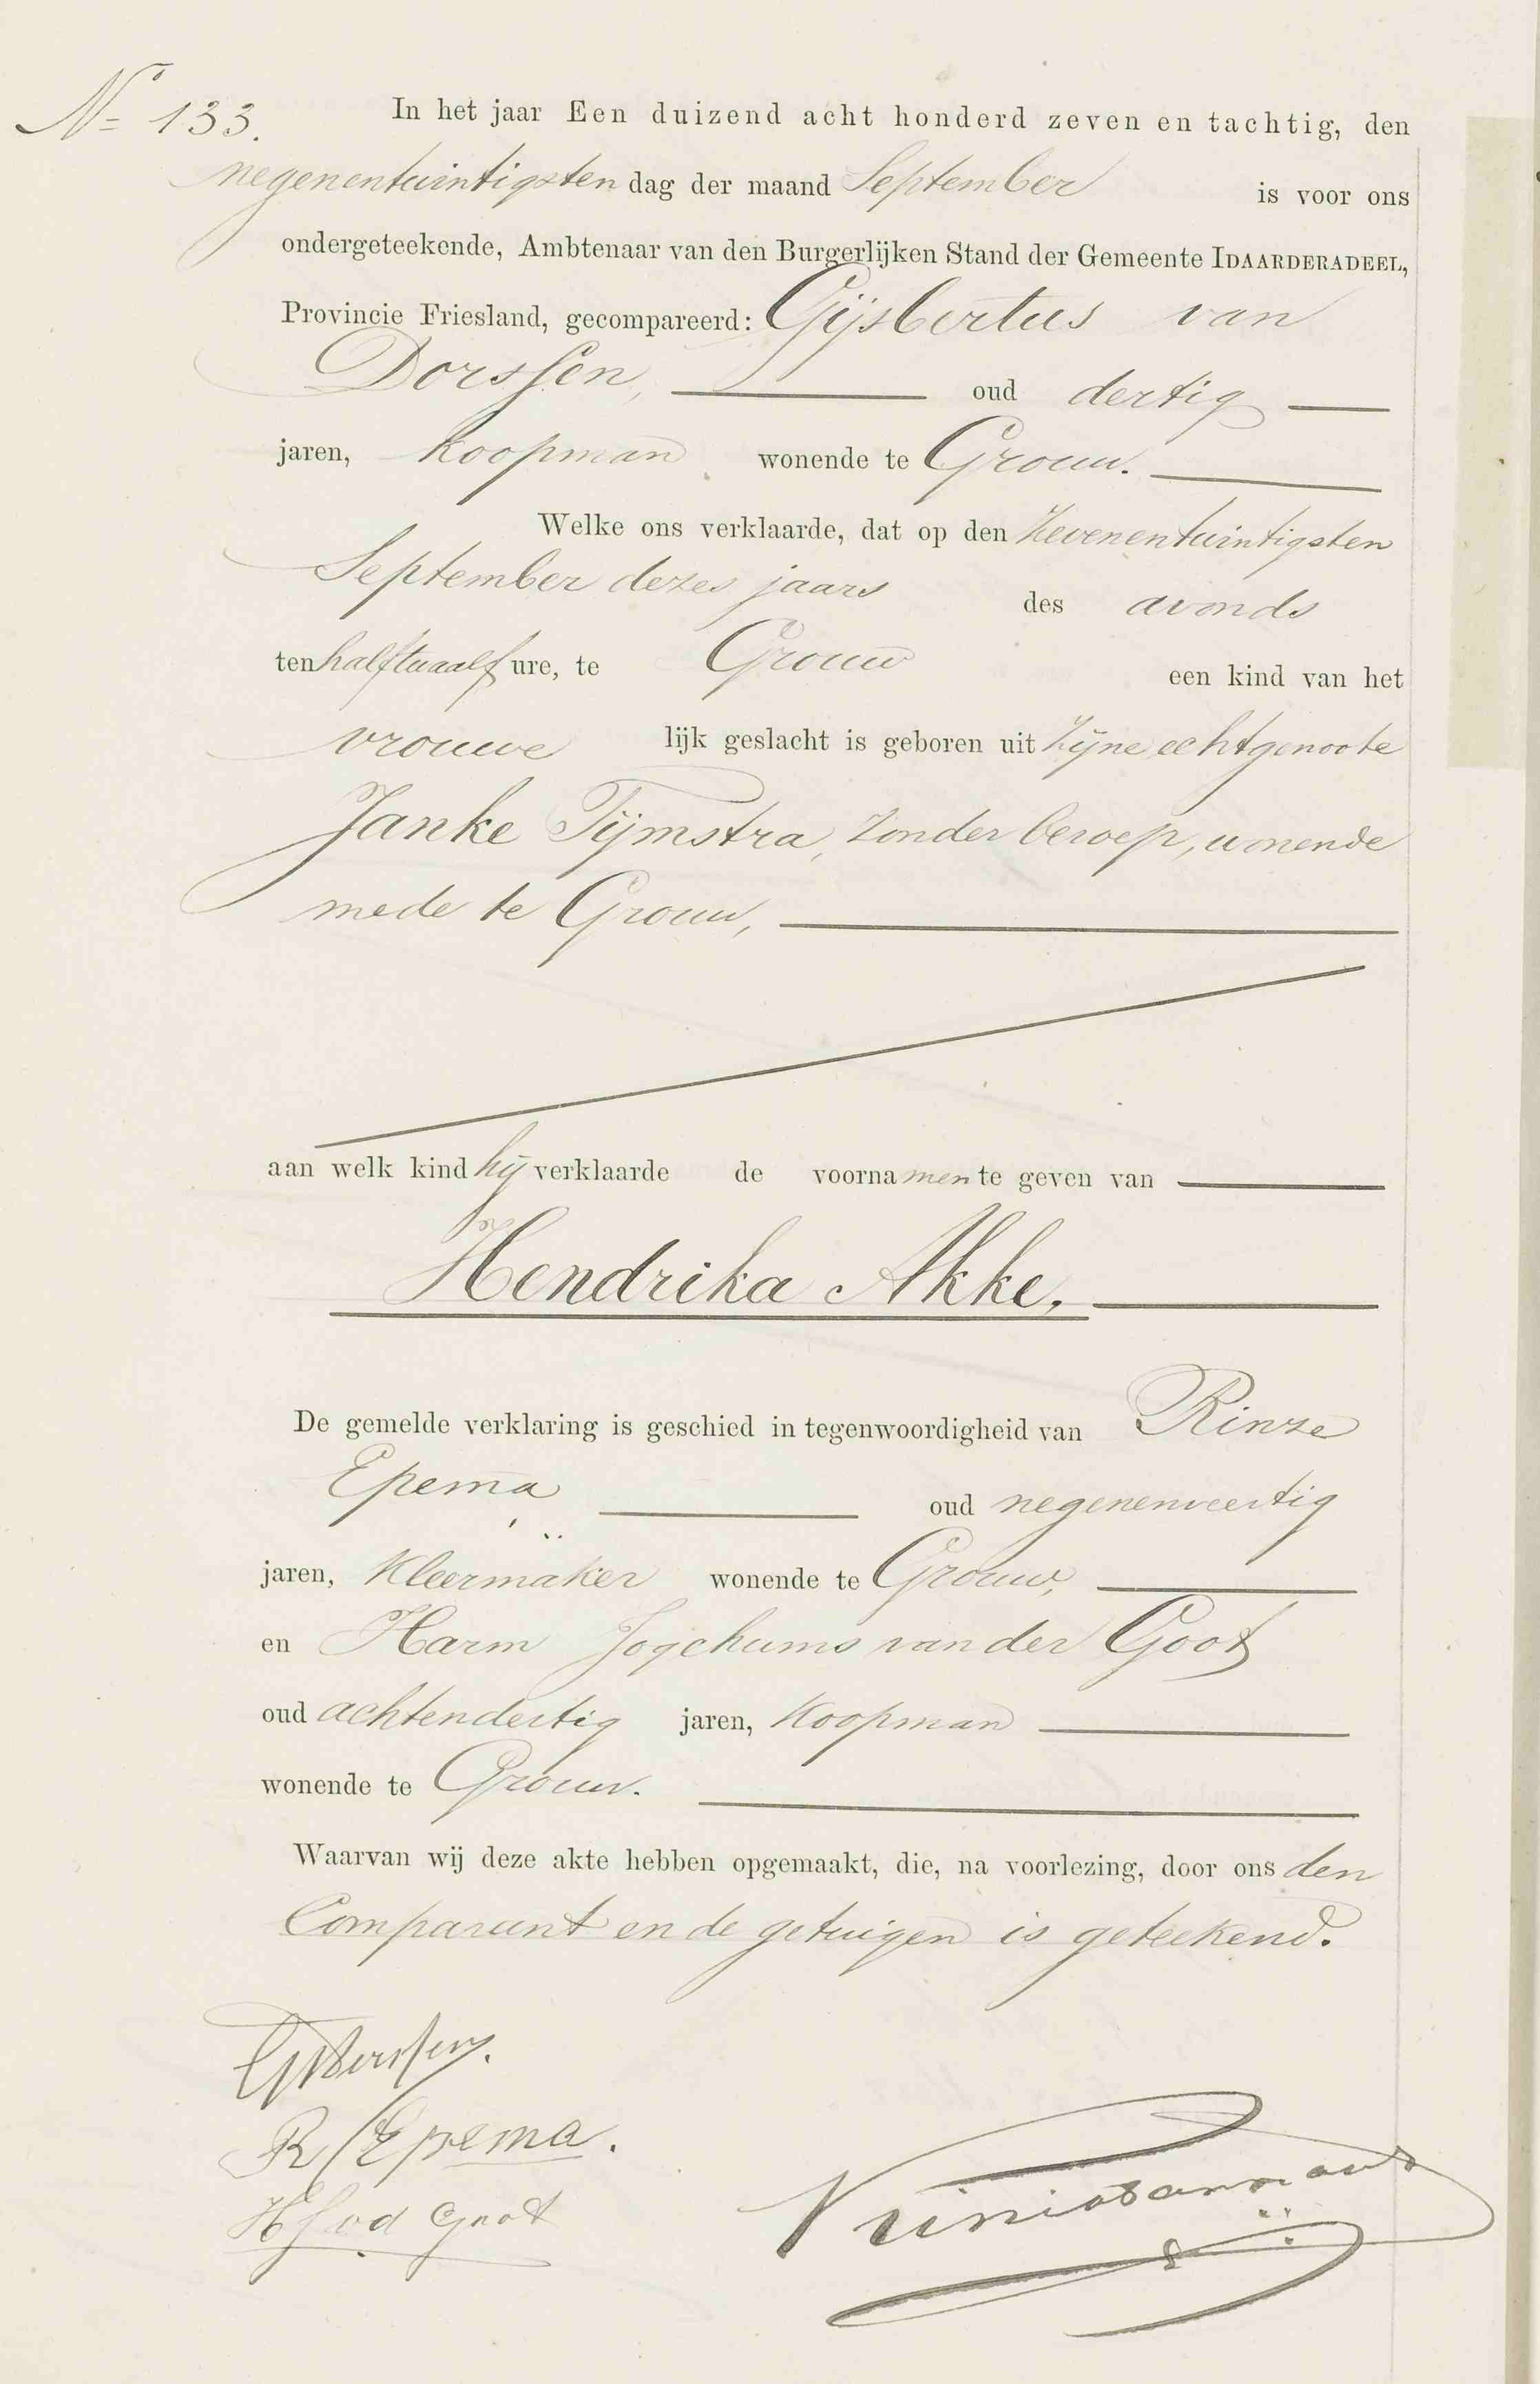 No 133. In het jaar Een duizend acht honderd zeven en tachtig, den
negenentwintigsten dag der maand September is voor ons
ondergeteekende, Ambtenaar van den Burgerlijken Stand der Gemeente IDAARDERADEEL,
Provincie Friesland, gecompareerd: Gijsbertus van
Dorssen, oud dertig
jaren, koopman wonende te Grouw.
Welke ons verklaarde, dat op den zevenentwintigsten
September dezes jaars des avonds
ten half twaalf ure, te Grouw een kind van het
vrouwe lijk geslacht is geboren uit zijne echtgenoote
Janke Tijmstra, zonder beroep, wonende
mede te Grouw,
aan welk kind hij verklaarde de voornamen te geven van
Hendrika Akke.
De gemelde verklaring is geschied in tegenwoordigheid van Rinze
Epema oud negenenveertig
jaren, Kleermaker wonende te Grouw,
en Harm Jogchums van der Goot
oud achtendertig jaren, Koopman
wonende te Grouw.
Waarvan wij deze akte hebben opgemaakt, die, na voorlezing, door ons den
Comparant en de getuigen is geteekend.
GvDorssen.
R Epema.
HJ vd Goot